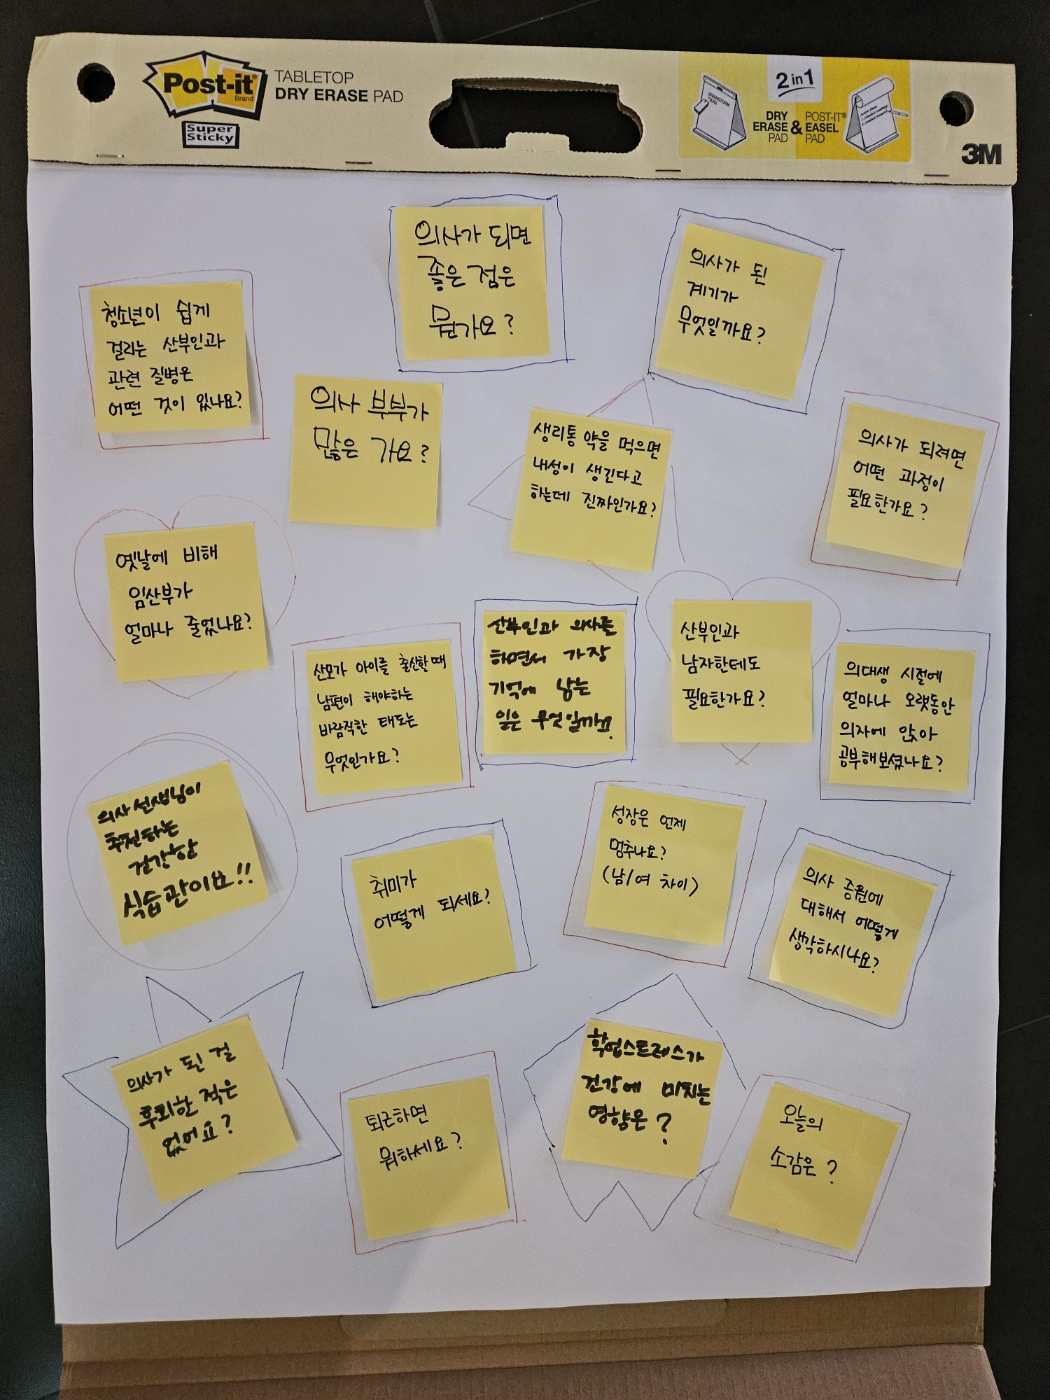 Post-it
Brand
Super
Sticky
TABLETOP
DRY ERASE PAD
2 in 1
DRY
ERASE
PAD
&
POST-IT®
EASEL
PAD
3M
의사가 되면
좋은 점은
뭔가요?
의사가 된
계기가
무엇일까요?
청소년이 쉽게
걸리는 산부인과
관련 질병은
어떤 것이 있나요?
의사 부부가
많은 가요?
생리통 약을 먹으면
내성이 생긴다고
하는데 진짜인가요?
의사가 되려면
어떤 과정이
필요한가요?
옛날에 비해
임산부가
얼마나 줄었나요?
산모가 아이를 출산할 때
남편이 해야하는
바람직한 태도는
무엇인가요?
산부인과 의사를
하면서 가장
기억에 남는
일은 무엇일까요
산부인과
남자한테도
필요한가요?
의대생 시절에
얼마나 오랫동안
의자에 앉아
공부해보셨나요?
의사 선생님이
추천하는
건강한
식습관이요!!
취미가
어떻게 되세요?
성장은 언제
멈추나요?
(남/여 차이)
의사 증원에
대해서 어떻게
생각하시나요?
의사가 된 걸
후회한 적은
없어요?
퇴근하면
뭐하세요?
학업스트레스가
건강에 미치는
영향은?
오늘의
소감은?